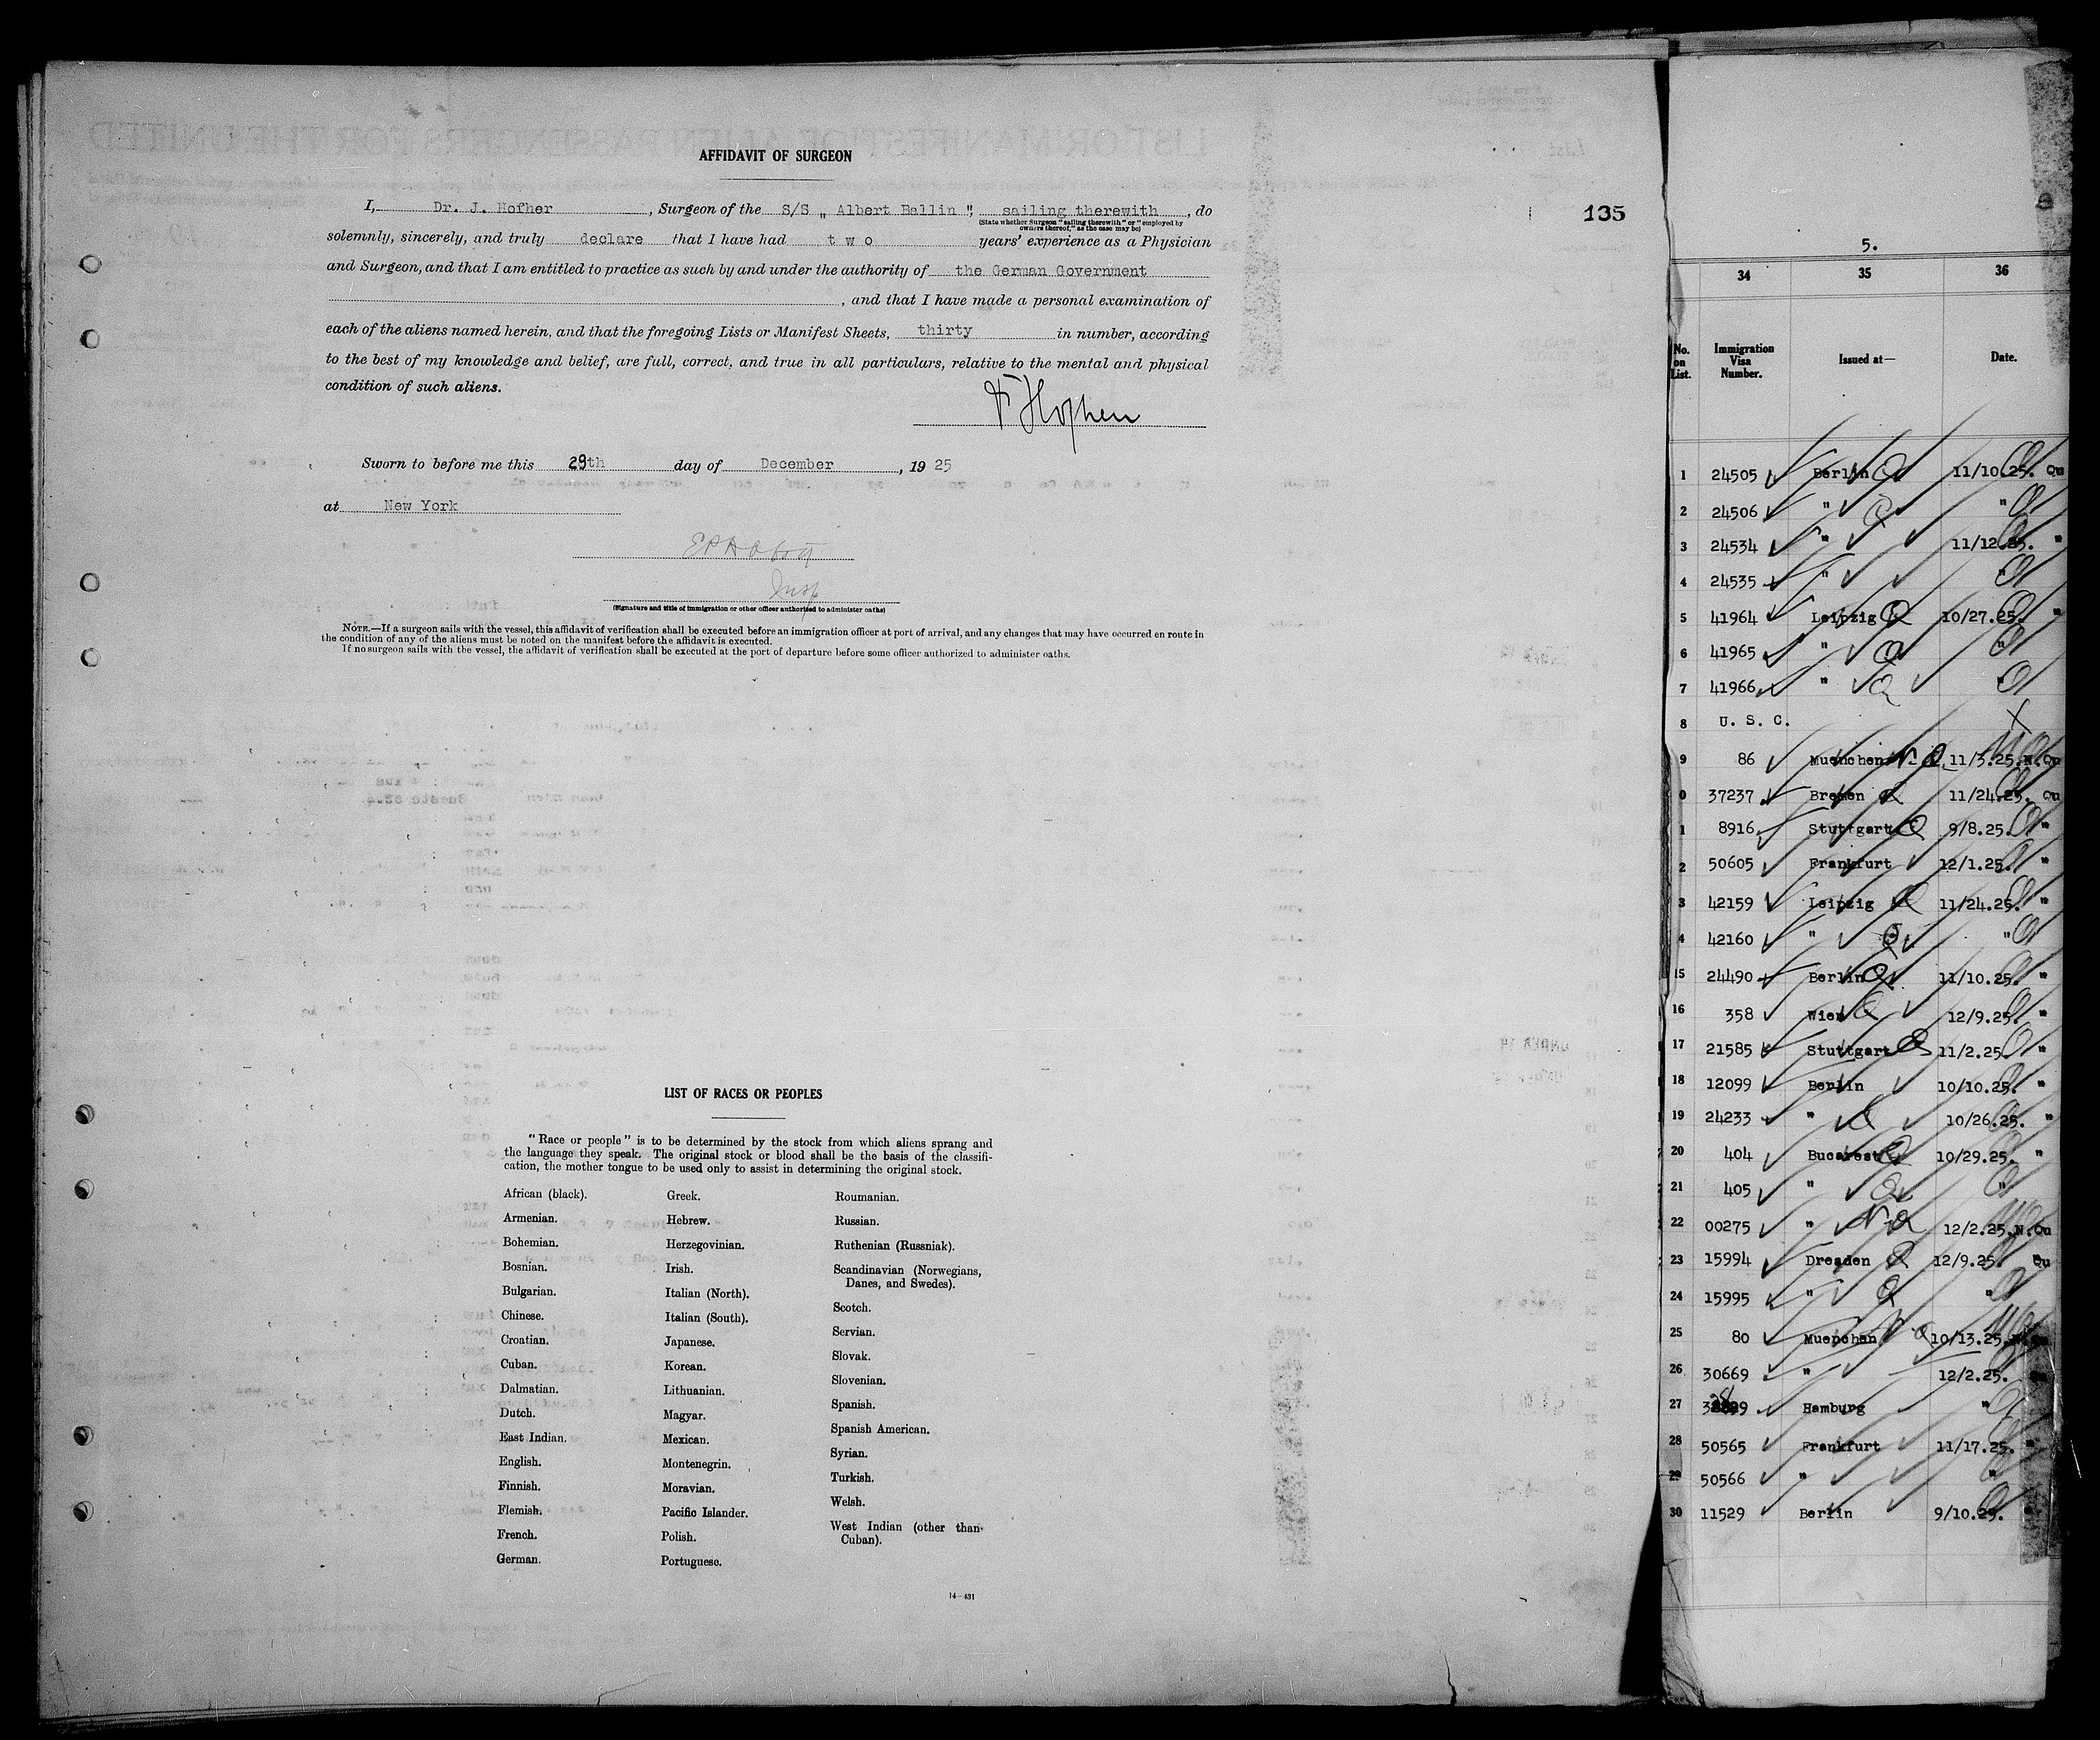 AFFIDAVIT OF SURGEON
I, Dr. J. Hofher , Surgeon of the S/S „ Albert Ballin ", sailing therewith , do
(State whether Surgeon "sailing therewith" or "employed by
owners thereof," as the case may be)
solemnly, sincerely, and truly declare that I have had t w o years' experience as a Physician
and Surgeon, and that I am entitled to practice as such by and under the authority of the German Government
, and that I have made a personal examination of
each of the aliens named herein, and that the foregoing Lists or Manifest Sheets, thirty in number, according
to the best of my knowledge and belief, are full, correct, and true in all particulars, relative to the mental and physical
condition of such aliens.
Sworn to before me this 29th day of December , 19 25
at New York
Insp
(Signature and title of immigration or other officer authorized to administer oaths)
NOTE.—If a surgeon sails with the vessel, this affidavit of verification shall be executed before an immigration officer at port of arrival, and any changes that may have occurred en route in
the condition of any of the aliens must be noted on the manifest before the affidavit is executed.
If no surgeon sails with the vessel, the affidavit of verification shall be executed at the port of departure before some officer authorized to administer oaths.
LIST OF RACES OR PEOPLES
"Race or people" is to be determined by the stock from which aliens sprang and
the language they speak. The original stock or blood shall be the basis of the classifi-
cation, the mother tongue to be used only to assist in determining the original stock.
African (black).
Armenian.
Bohemian.
Bosnian.
Bulgarian.
Chinese.
Croatian.
Cuban.
Dalmatian.
Dutch.
East Indian.
English.
Finnish.
Flemish.
French.
German.
Greek.
Hebrew.
Herzegovinian.
Irish.
Italian (North).
Italian (South).
Japanese.
Korean.
Lithuanian.
Magyar.
Mexican.
Montenegrin.
Moravian.
Pacific Islander.
Polish.
Portuguese.
Roumanian.
Russian.
Ruthenian (Russniak).
Scandinavian (Norwegians,
Danes, and Swedes).
Scotch.
Servian.
Slovak.
Slovenian.
Spanish.
Spanish American.
Syrian.
Turkish.
Welsh.
West Indian (other than
Cuban).
14—431
135
5.
34 35 36
No. on List. Immigration Visa Number. Issued at— Date.
1 24505 Berlin Q 11/10.25. Qu
2 24506 " Q "
3 24534 " 11/12.25. "
4 24535 " "
5 41964 Leipzig Q 10/27.25. "
6 41965 " Q "
7 41966 " Q "
8 U. S. C. X
9 86 Muenchen N-Q 11/3.25. N.Qu
0 37237 Bremen Q 11/24.25. Qu
1 8916 Stuttgart Q 9/8.25. "
2 50605 Frankfurt 12/1.25. "
3 42159 Leipzig Q 11/24.25. "
4 42160 " Q "
15 24490 Berlin Q 11/10.25. "
16 358 Wien Q 12/9.25. "
17 21585 Stuttgart Q 11/2.25. "
18 12099 Berlin 10/10.25. "
19 24233 " Q 10/26.25. "
20 404 Bucarest Q 10/29.25. "
21 405 " Q "
22 00275 " N-Q 12/2.25. N.Qu
23 15994 Dresden Q 12/9.25. Qu
24 15995 " Q "
25 80 Muenchen 10/13.25.
26 30669 " 12/2.25.
27 Hamburg "
28 50565 Frankfurt 11/17.25. "
29 50566 " "
30 11529 Berlin 9/10.25.